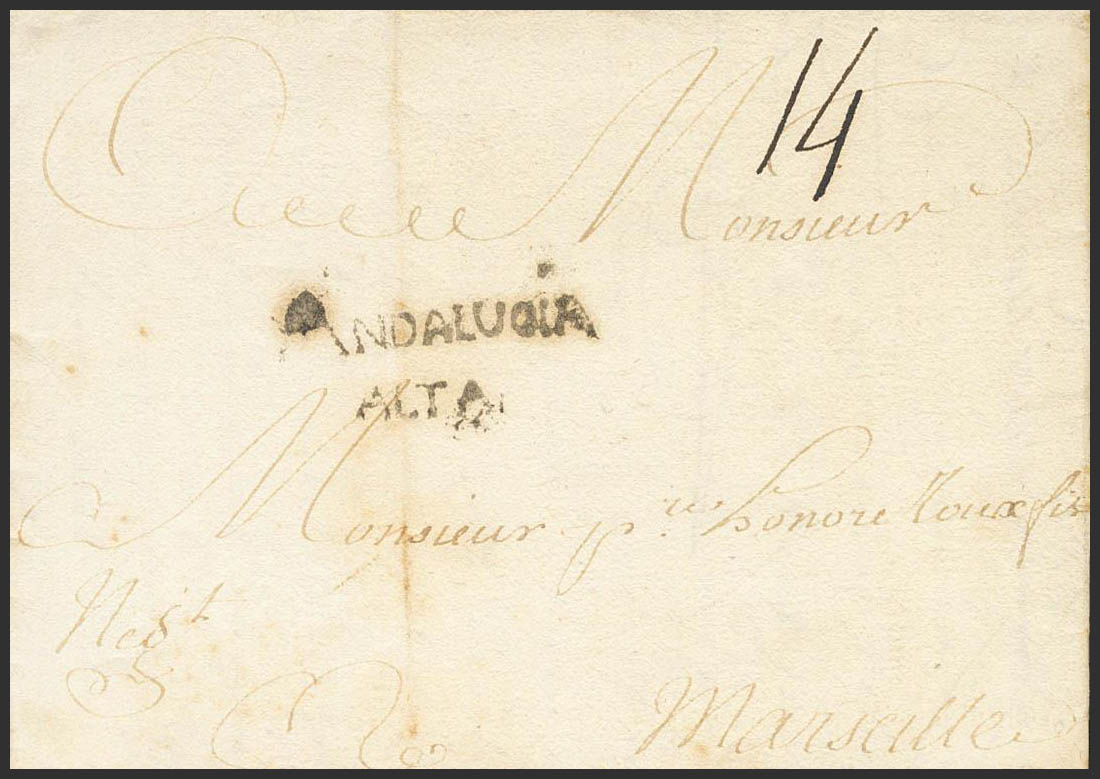 14
A Monsieur
ANDALUCIA
ALTA
Monsieur p.re honore Roux fils
Neg.t
A Marseille